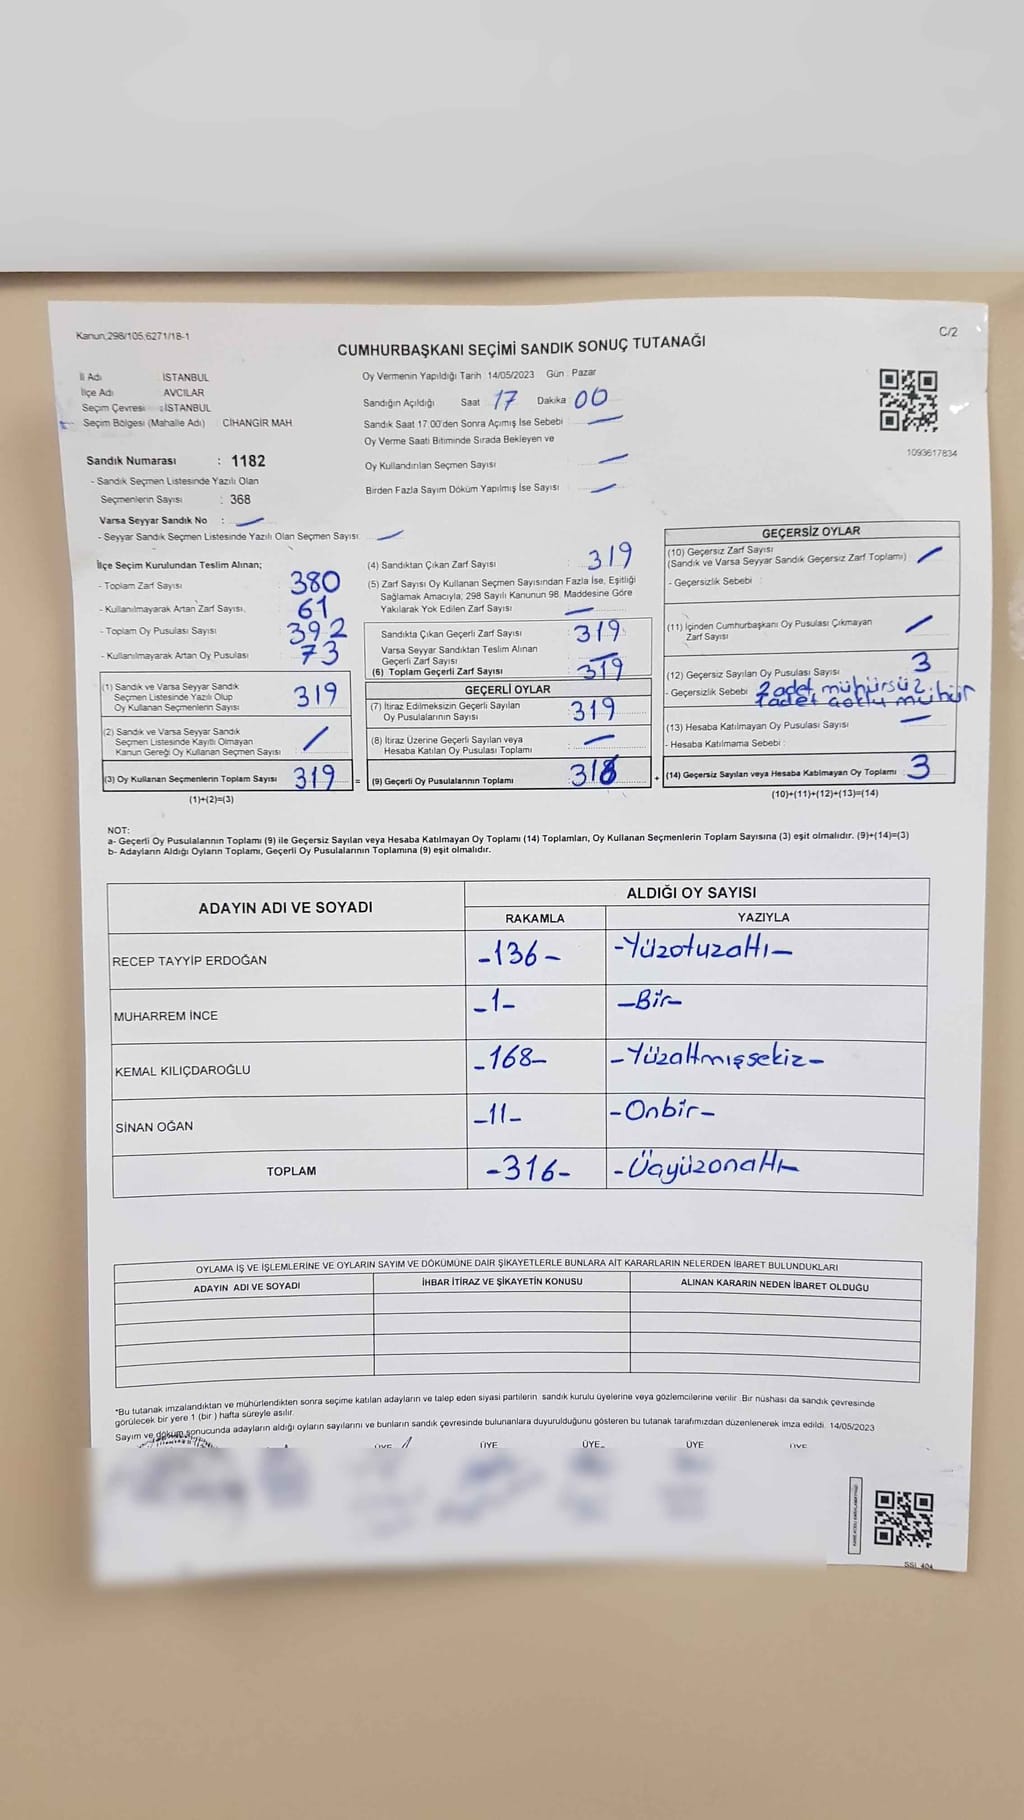 Kanun,298/105,6271/18-1
C/2
CUMHURBAŞKANI SEÇİMİ SANDIK SONUÇ TUTANAĞI
İl Adı : İSTANBUL
İlçe Adı : AVCILAR
Seçim Çevresi : İSTANBUL
Seçim Bölgesi (Mahalle Adı) CİHANGİR MAH
Sandık Numarası : 1182
- Sandık Seçmen Listesinde Yazılı Olan
Seçmenlerin Sayısı : 368
Varsa Seyyar Sandık No :
- Seyyar Sandık Seçmen Listesinde Yazılı Olan Seçmen Sayısı:
Oy Vermenin Yapıldığı Tarih 14/05/2023 Gün : Pazar
Sandığın Açıldığı Saat 17 Dakika 00
Sandık Saat 17.00'den Sonra Açımış İse Sebebi
Oy Verme Saati Bitiminde Sırada Bekleyen ve
Oy Kullandırılan Seçmen Sayısı
Birden Fazla Sayım Döküm Yapılmış İse Sayısı
1093617834
İlçe Seçim Kurulundan Teslim Alınan;
- Toplam Zarf Sayısı 380
- Kullanılmayarak Artan Zarf Sayısı, 61
- Toplam Oy Pusulası Sayısı 392
- Kullanılmayarak Artan Oy Pusulası 73
(1) Sandık ve Varsa Seyyar Sandık
Seçmen Listesinde Yazılı Olup
Oy Kullanan Seçmenlerin Sayısı 319
(2) Sandık ve Varsa Seyyar Sandık
Seçmen Listesinde Kayıtlı Olmayan
Kanun Gereği Oy Kullanan Seçmen Sayısı /
(3) Oy Kullanan Seçmenlerin Toplam Sayısı 319 =
(1)+(2)=(3)
(4) Sandıktan Çıkan Zarf Sayısı : 319
(5) Zarf Sayısı Oy Kullanan Seçmen Sayısından Fazla İse, Eşitliği
Sağlamak Amacıyla, 298 Sayılı Kanunun 98. Maddesine Göre
Yakılarak Yok Edilen Zarf Sayısı :
Sandıkta Çıkan Geçerli Zarf Sayısı : 319
Varsa Seyyar Sandıktan Teslim Alınan
Geçerli Zarf Sayısı :
(6) Toplam Geçerli Zarf Sayısı : 319
GEÇERLİ OYLAR
(7) İtiraz Edilmeksizin Geçerli Sayılan
Oy Pusulalarının Sayısı : 319
(8) İtiraz Üzerine Geçerli Sayılan veya
Hesaba Katılan Oy Pusulası Toplamı :
(9) Geçerli Oy Pusulalarının Toplamı +
GEÇERSİZ OYLAR
(10) Geçersiz Zarf Sayısı
(Sandık ve Varsa Seyyar Sandık Geçersiz Zarf Toplamı)
- Geçersizlik Sebebi :
(11) İçinden Cumhurbaşkanı Oy Pusulası Çıkmayan
Zarf Sayısı
(12) Geçersiz Sayılan Oy Pusulası Sayısı 3
- Geçersizlik Sebebi 2 adet mühürsüz
1 adet mühür
(13) Hesaba Katılmayan Oy Pusulası Sayısı
- Hesaba Katılmama Sebebi :
(14) Geçersiz Sayılan veya Hesaba Katılmayan Oy Toplamı 3
(10)+(11)+(12)+(13)=(14)
NOT:
a- Geçerli Oy Pusulalarının Toplamı (9) ile Geçersiz Sayılan veya Hesaba Katılmayan Oy Toplamı (14) Toplamları, Oy Kullanan Seçmenlerin Toplam Sayısına (3) eşit olmalıdır. (9)+(14)=(3)
b- Adayların Aldığı Oyların Toplamı, Geçerli Oy Pusulalarının Toplamına (9) eşit olmalıdır.
ADAYIN ADI VE SOYADI
ALDIĞI OY SAYISI
RAKAMLA YAZIYLA
RECEP TAYYİP ERDOĞAN -136- -Yüzotuzaltı-
MUHARREM İNCE -1- -Bir-
KEMAL KILIÇDAROĞLU -168- -Yüzaltmışsekiz-
SİNAN OĞAN -11- -Onbir-
TOPLAM -316- -Üçyüzonaltı-
OYLAMA İŞ VE İŞLEMLERİNE VE OYLARIN SAYIM VE DÖKÜMÜNE DAİR ŞİKAYETLERLE BUNLARA AİT KARARLARIN NELERDEN İBARET BULUNDUKLARI
ADAYIN ADI VE SOYADI İHBAR İTİRAZ VE ŞİKAYETİN KONUSU ALINAN KARARIN NEDEN İBARET OLDUĞU
*Bu tutanak imzalandıktan ve mühürlendikten sonra seçime katılan adayların ve talep eden siyasi partilerin sandık kurulu üyelerine veya gözlemcilerine verilir. Bir nüshası da sandık çevresinde
görülecek bir yere 1 (bir) hafta süreyle asılır.
Sayım ve döküm sonucunda adayların aldığı oyların sayılarını ve bunların sandık çevresinde bulunanlara duyurulduğunu gösteren bu tutanak tarafımızdan düzenlenerek imza edildi. 14/05/2023
ÜYE ÜYE ÜYE ÜYE ÜYE
SSL 404